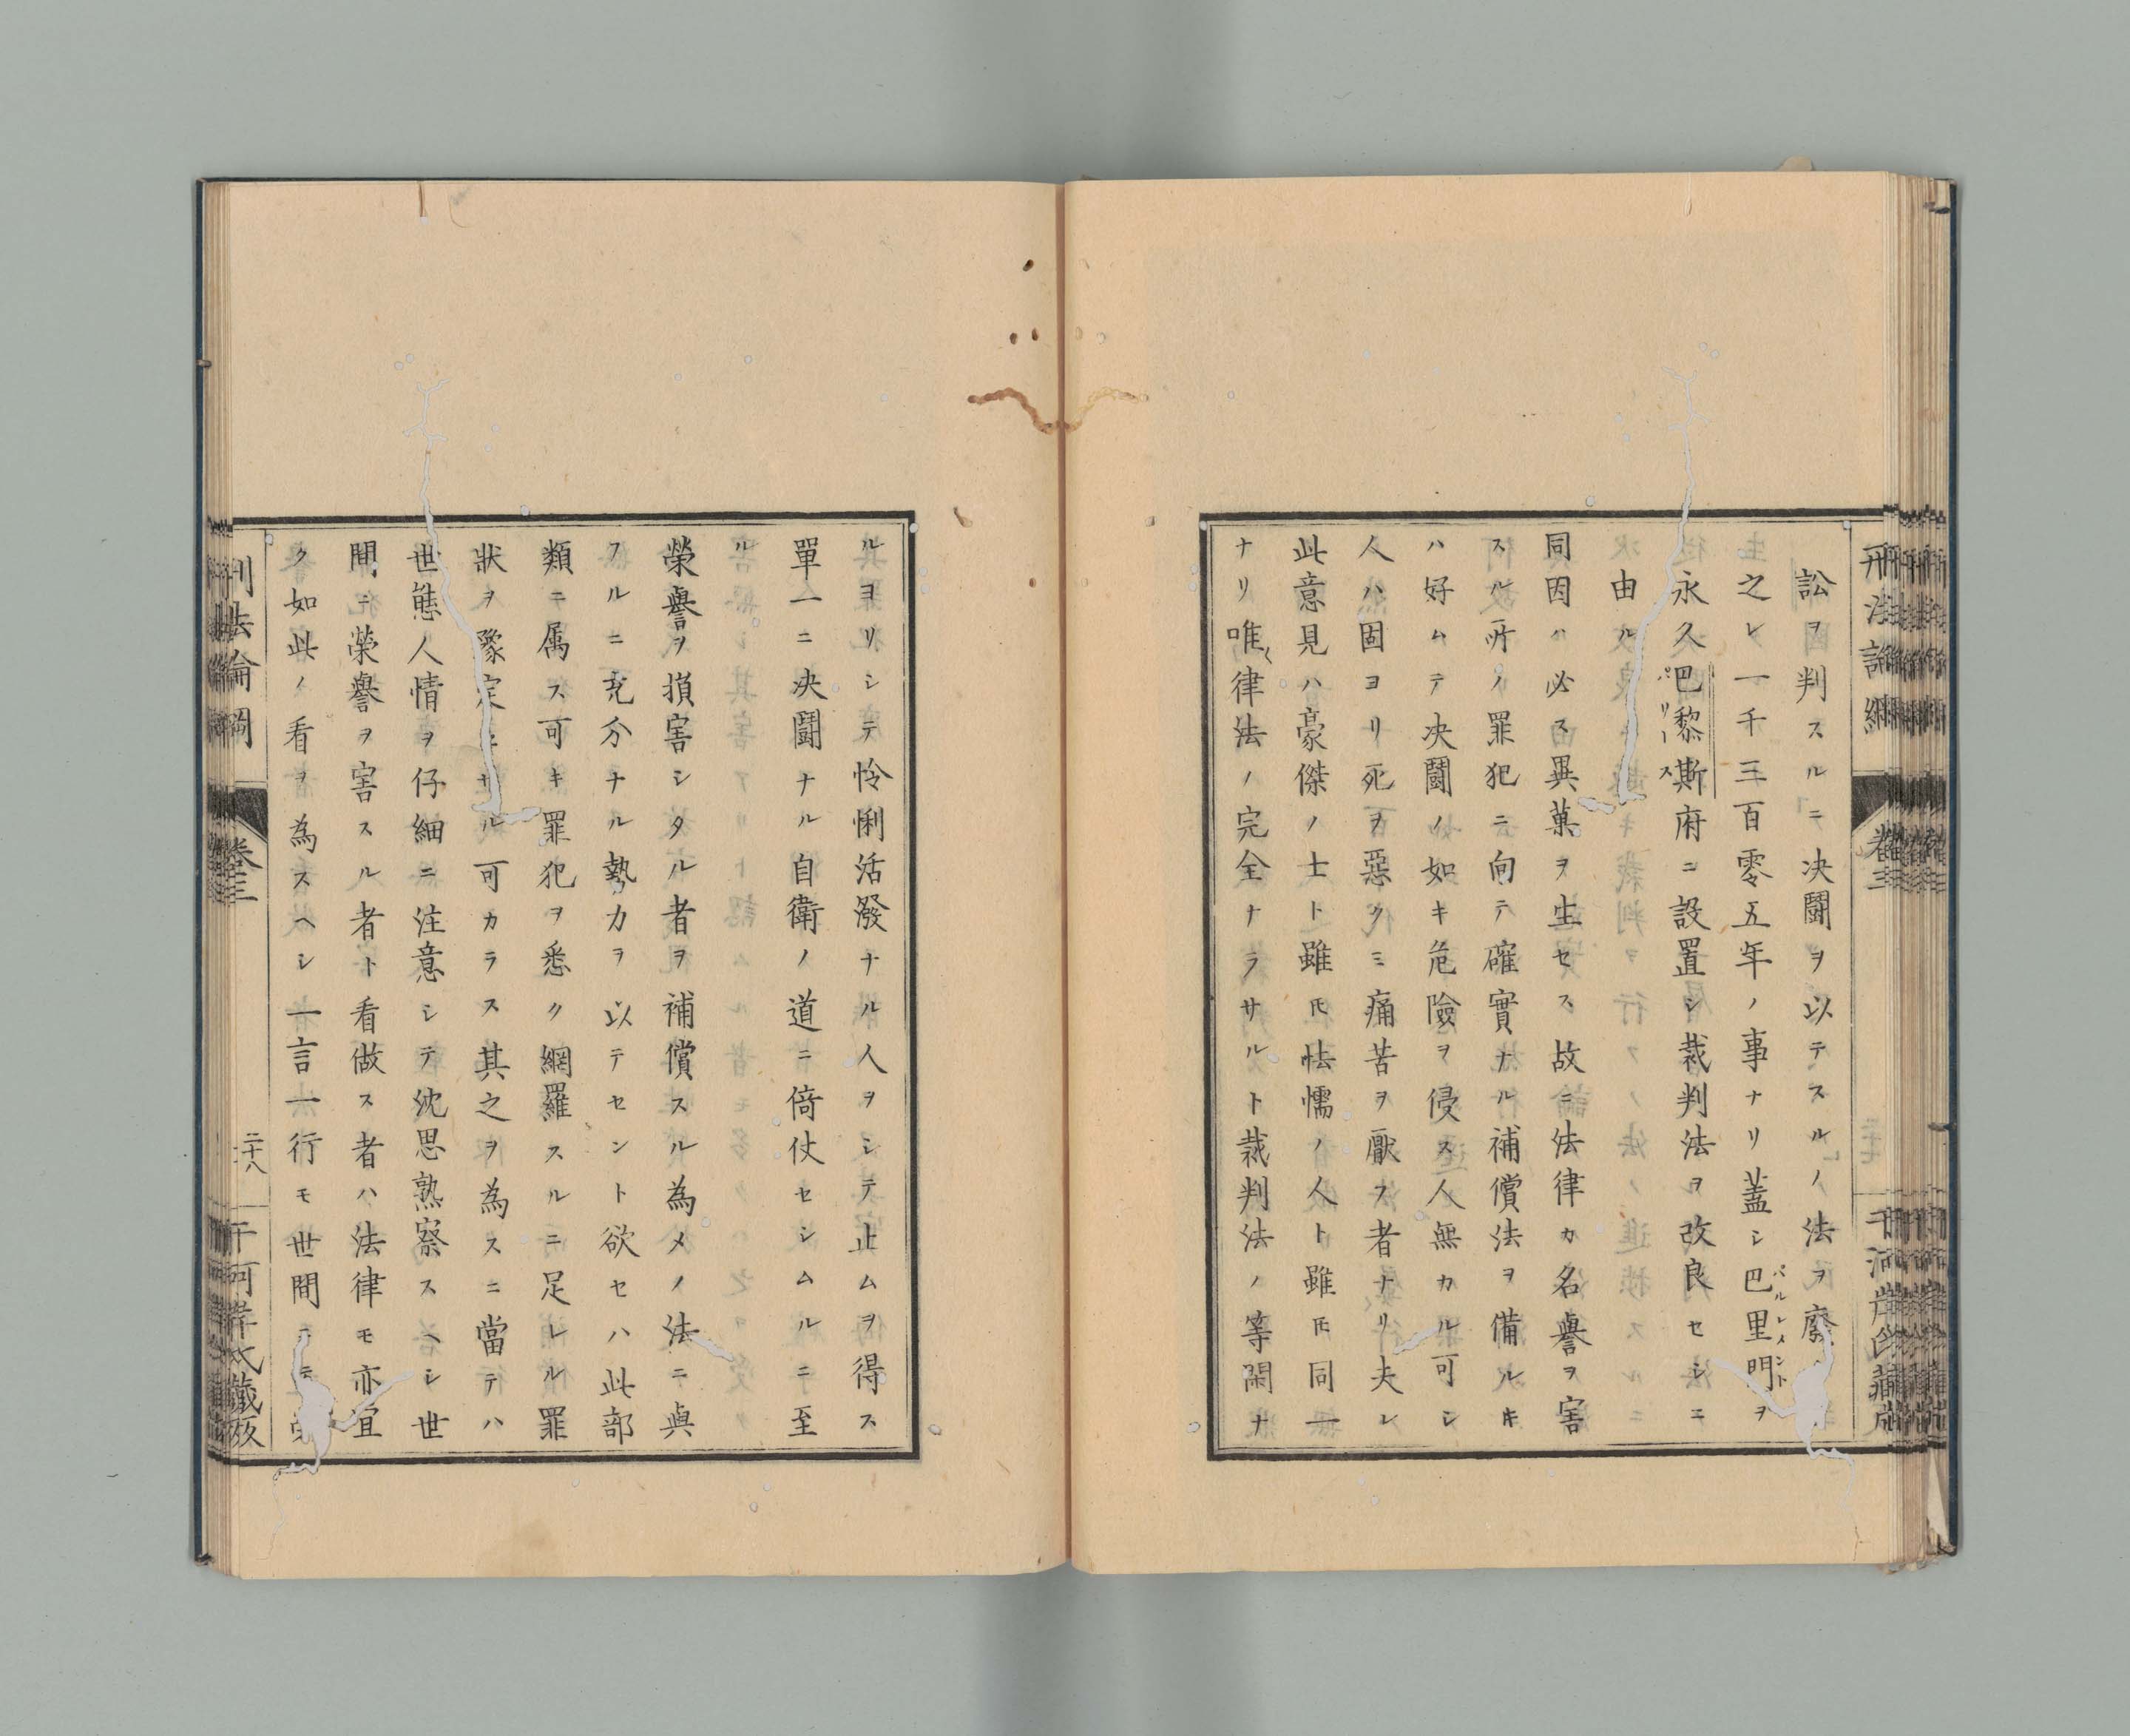 訟ヲ判スルニ决闘ヲ以テスルノ法ヲ廢
之レ一千三百零五年ノ事ナリ蓋シ巴里門ヲ
パルレメント
永久巴黎斯府ニ設置シ裁判法ヲ改良セシニ
パリース
由ル
同因ハ必ス異菓ヲ生セス故ニ法律カ名譽ヲ害
スル所ノ罪犯ニ向テ確實ナル補償法ヲ備ルキ
ハ好ムテ决闘ノ如キ危險ヲ侵ス人無カル可シ
人ハ固ヨリ死ヲ惡クミ痛苦ヲ厭フ者ナリ夫レ
此意見ハ豪傑ノ士ト雖𪜈怯懦ノ人ト雖𪜈同一
ナリ唯〱律法ノ完全ナラサルト裁判法ノ等閑ナ
ルヨリシテ怜悧活潑ナル人ヲシテ止ムヲ得ス
單一ニ决闘ナル自衛ノ道ニ倚仗セシムルニ至
ル
榮譽ヲ損害シタル者ヲ補償スル為メノ法ニ與
フルニ充分ナル勢力ヲ以テセント欲セハ此部
類ニ属ス可キ罪犯ヲ悉ク網羅スルニ足レル罪
狀ヲ豫定セサル可カラス其之ヲ為スニ當テハ
世態人情ヲ仔細ニ注意シテ沈思熟察スヘシ世
間ニ榮譽ヲ害スル者ト看做ス者ハ法律モ亦宜
ク如此ノ看ヲ為スヘシ一言一行モ世間
刑法論綱
卷三
二十八